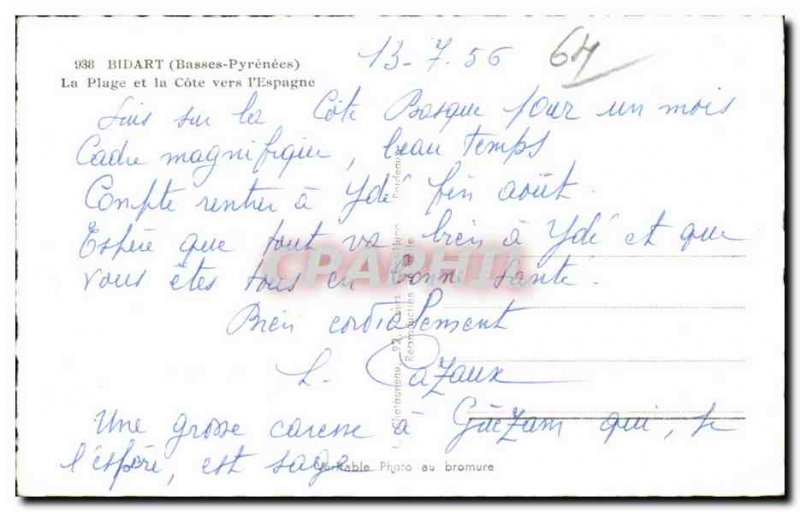 938 BIDART (Basses-Pyrénées)
La Plage et la Côte vers l'Espagne
13-7.56
64
Suis sur la Côte Basque pour un mois
Cadre magnifique, beau temps
Compte rentrer à Ydé fin août.
Espère que tout va bien à Ydé et que
vous êtes tous en bonne santé.
Bien cordialement
L. Cazaux
Une grosse caresse à qui, je
l'espère, est sage
Véritable Photo au bromure
CPARFIT